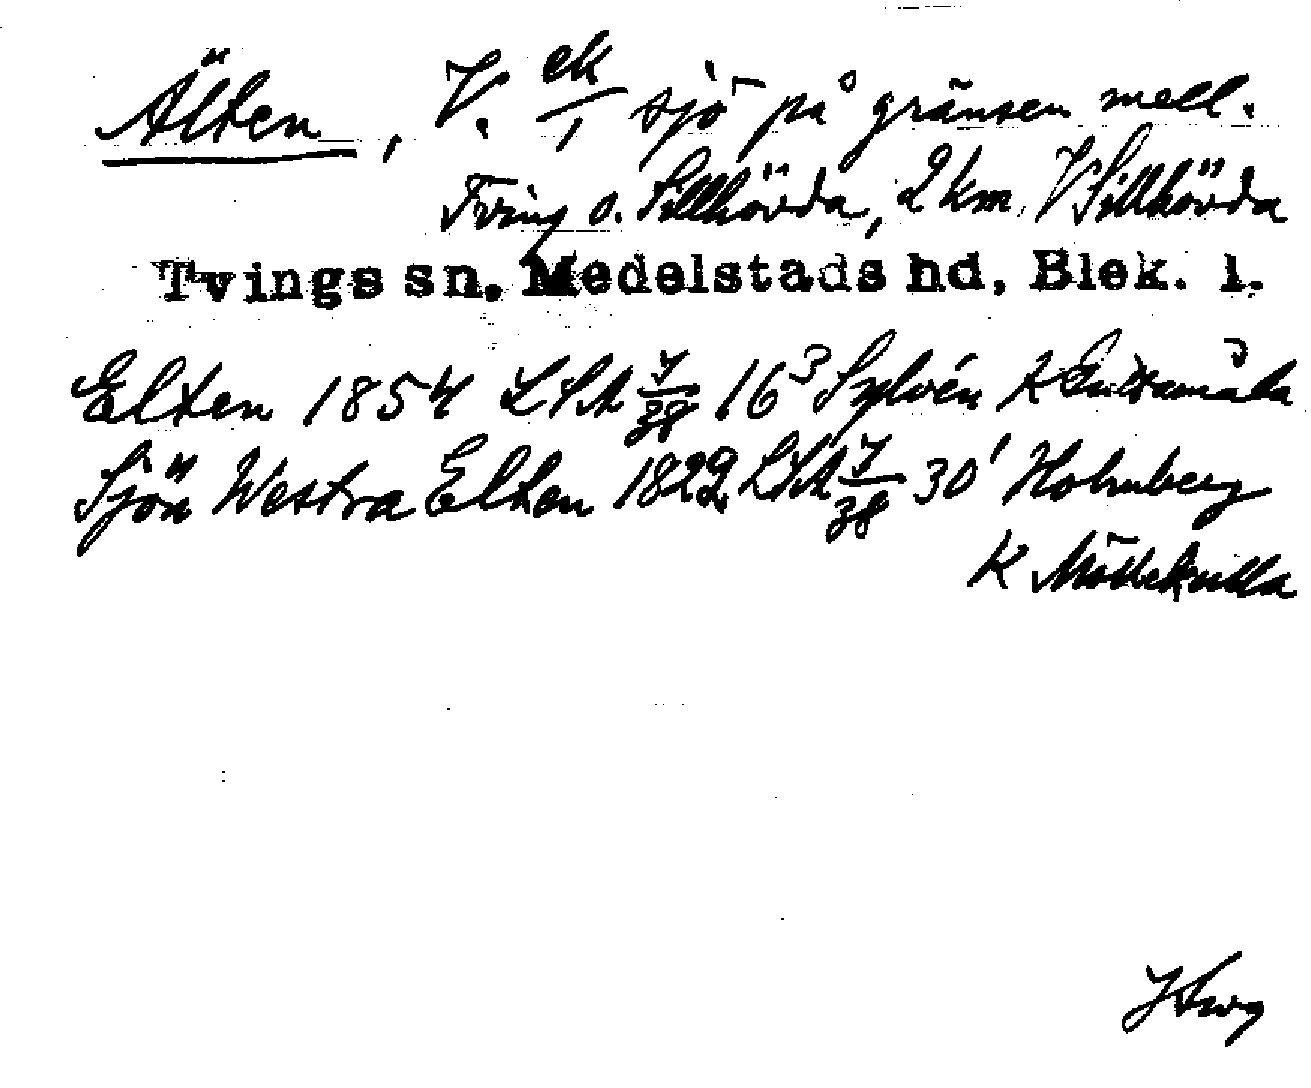 Älten, V. ek/1 sjö på gränsen mell.
Tving o. Sillhövda, 2 km V Sillhövda
Tvings sn, Medelstads hd, Blek. l.
Elten 1854 LSA 7/38 16³ Sylvén K Guttamåla
Sjön Westra Elten 1822 LSA 7/38 30' Holmberg
K Möllekulla